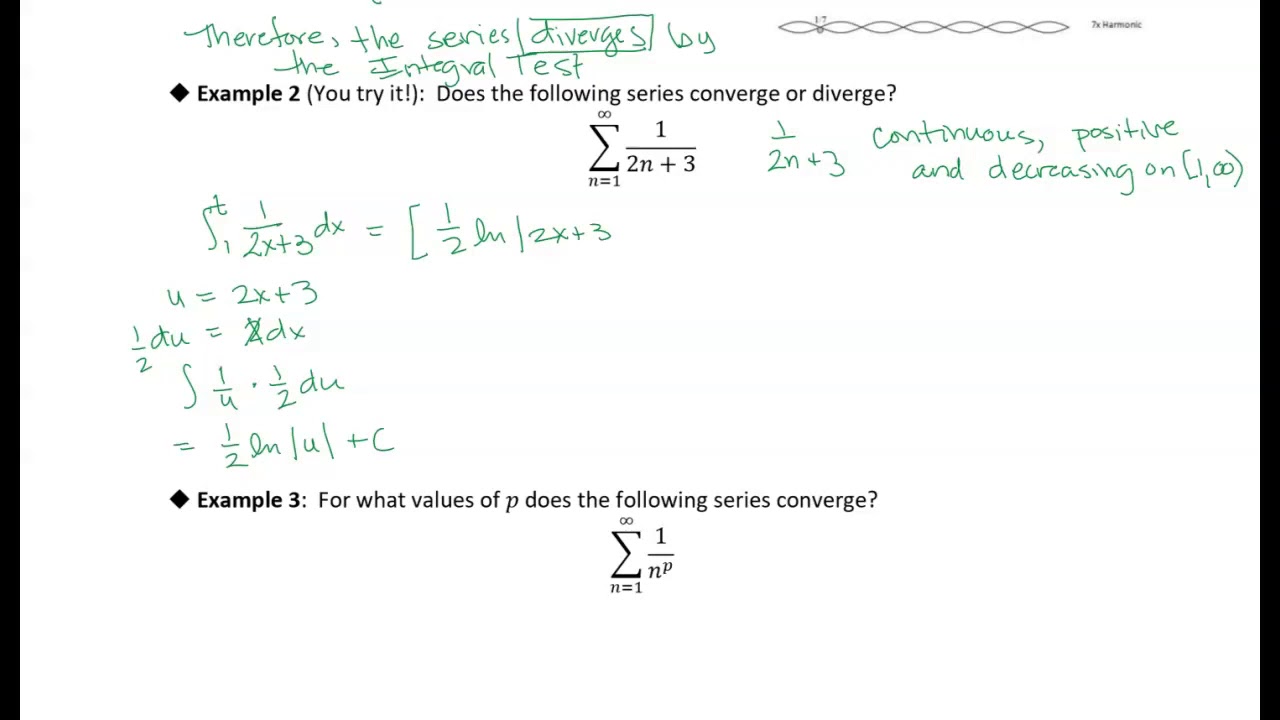 Therefore, the series diverges by
the Integral Test
1/7
7x Harmonic
◆ Example 2 (You try it!): Does the following series converge or diverge?
∑_{n=1}^{∞} 1/(2n + 3)
1/(2n+3) continuous, positive
and decreasing on [1,∞)
∫_1^t 1/(2x+3) dx = [ 1/2 ln |2x+3
u = 2x+3
1/2 du = 2dx
∫ 1/u · 1/2 du
= 1/2 ln |u| + C
◆ Example 3: For what values of p does the following series converge?
∑_{n=1}^{∞} 1/n^p